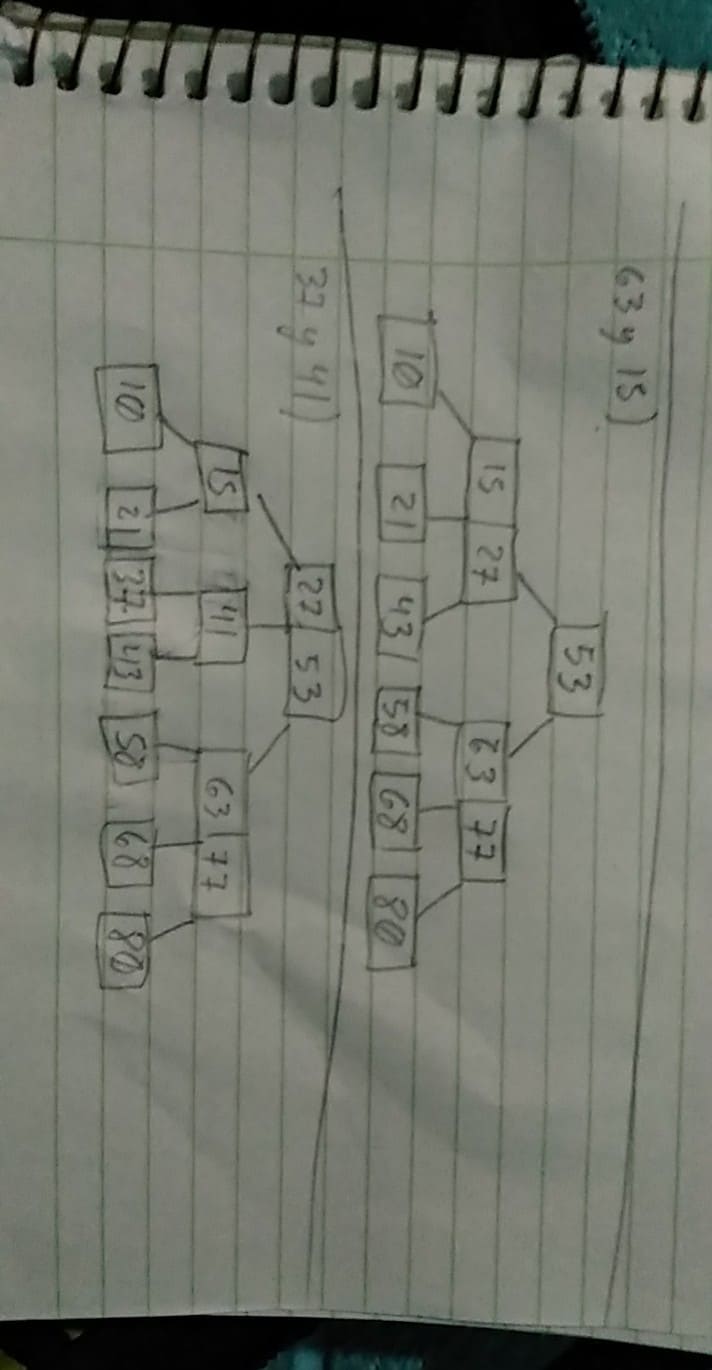 63 y 15)
53
15 27 63 77
10 21 43 58 68 80
37 y 41)
27 53
15 41 63 77
10 21 37 43 58 68 80